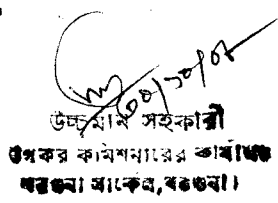 ৩০/১০/০৮
উচ্চমান সহকারী
উপকর কমিশনারের কার্যালয়
বরগুনা সার্কেল, বরগুনা।